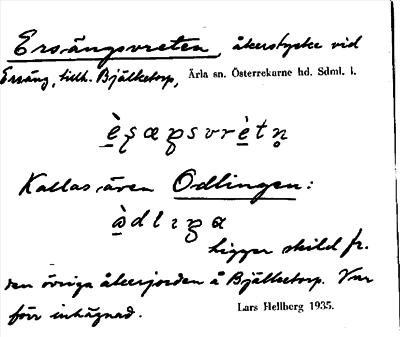 Ersängsvreten, åkerstycke vid
Ersäng, tillh. Bjälketorp, Ärla sn. Österrekarne hd. Sdml. l.
Kallas även Odlingen:
ligger skild fr.
den övriga åkerjorden å Bjälketorp. Var
förr inhägnad. Lars Hellberg 1935.